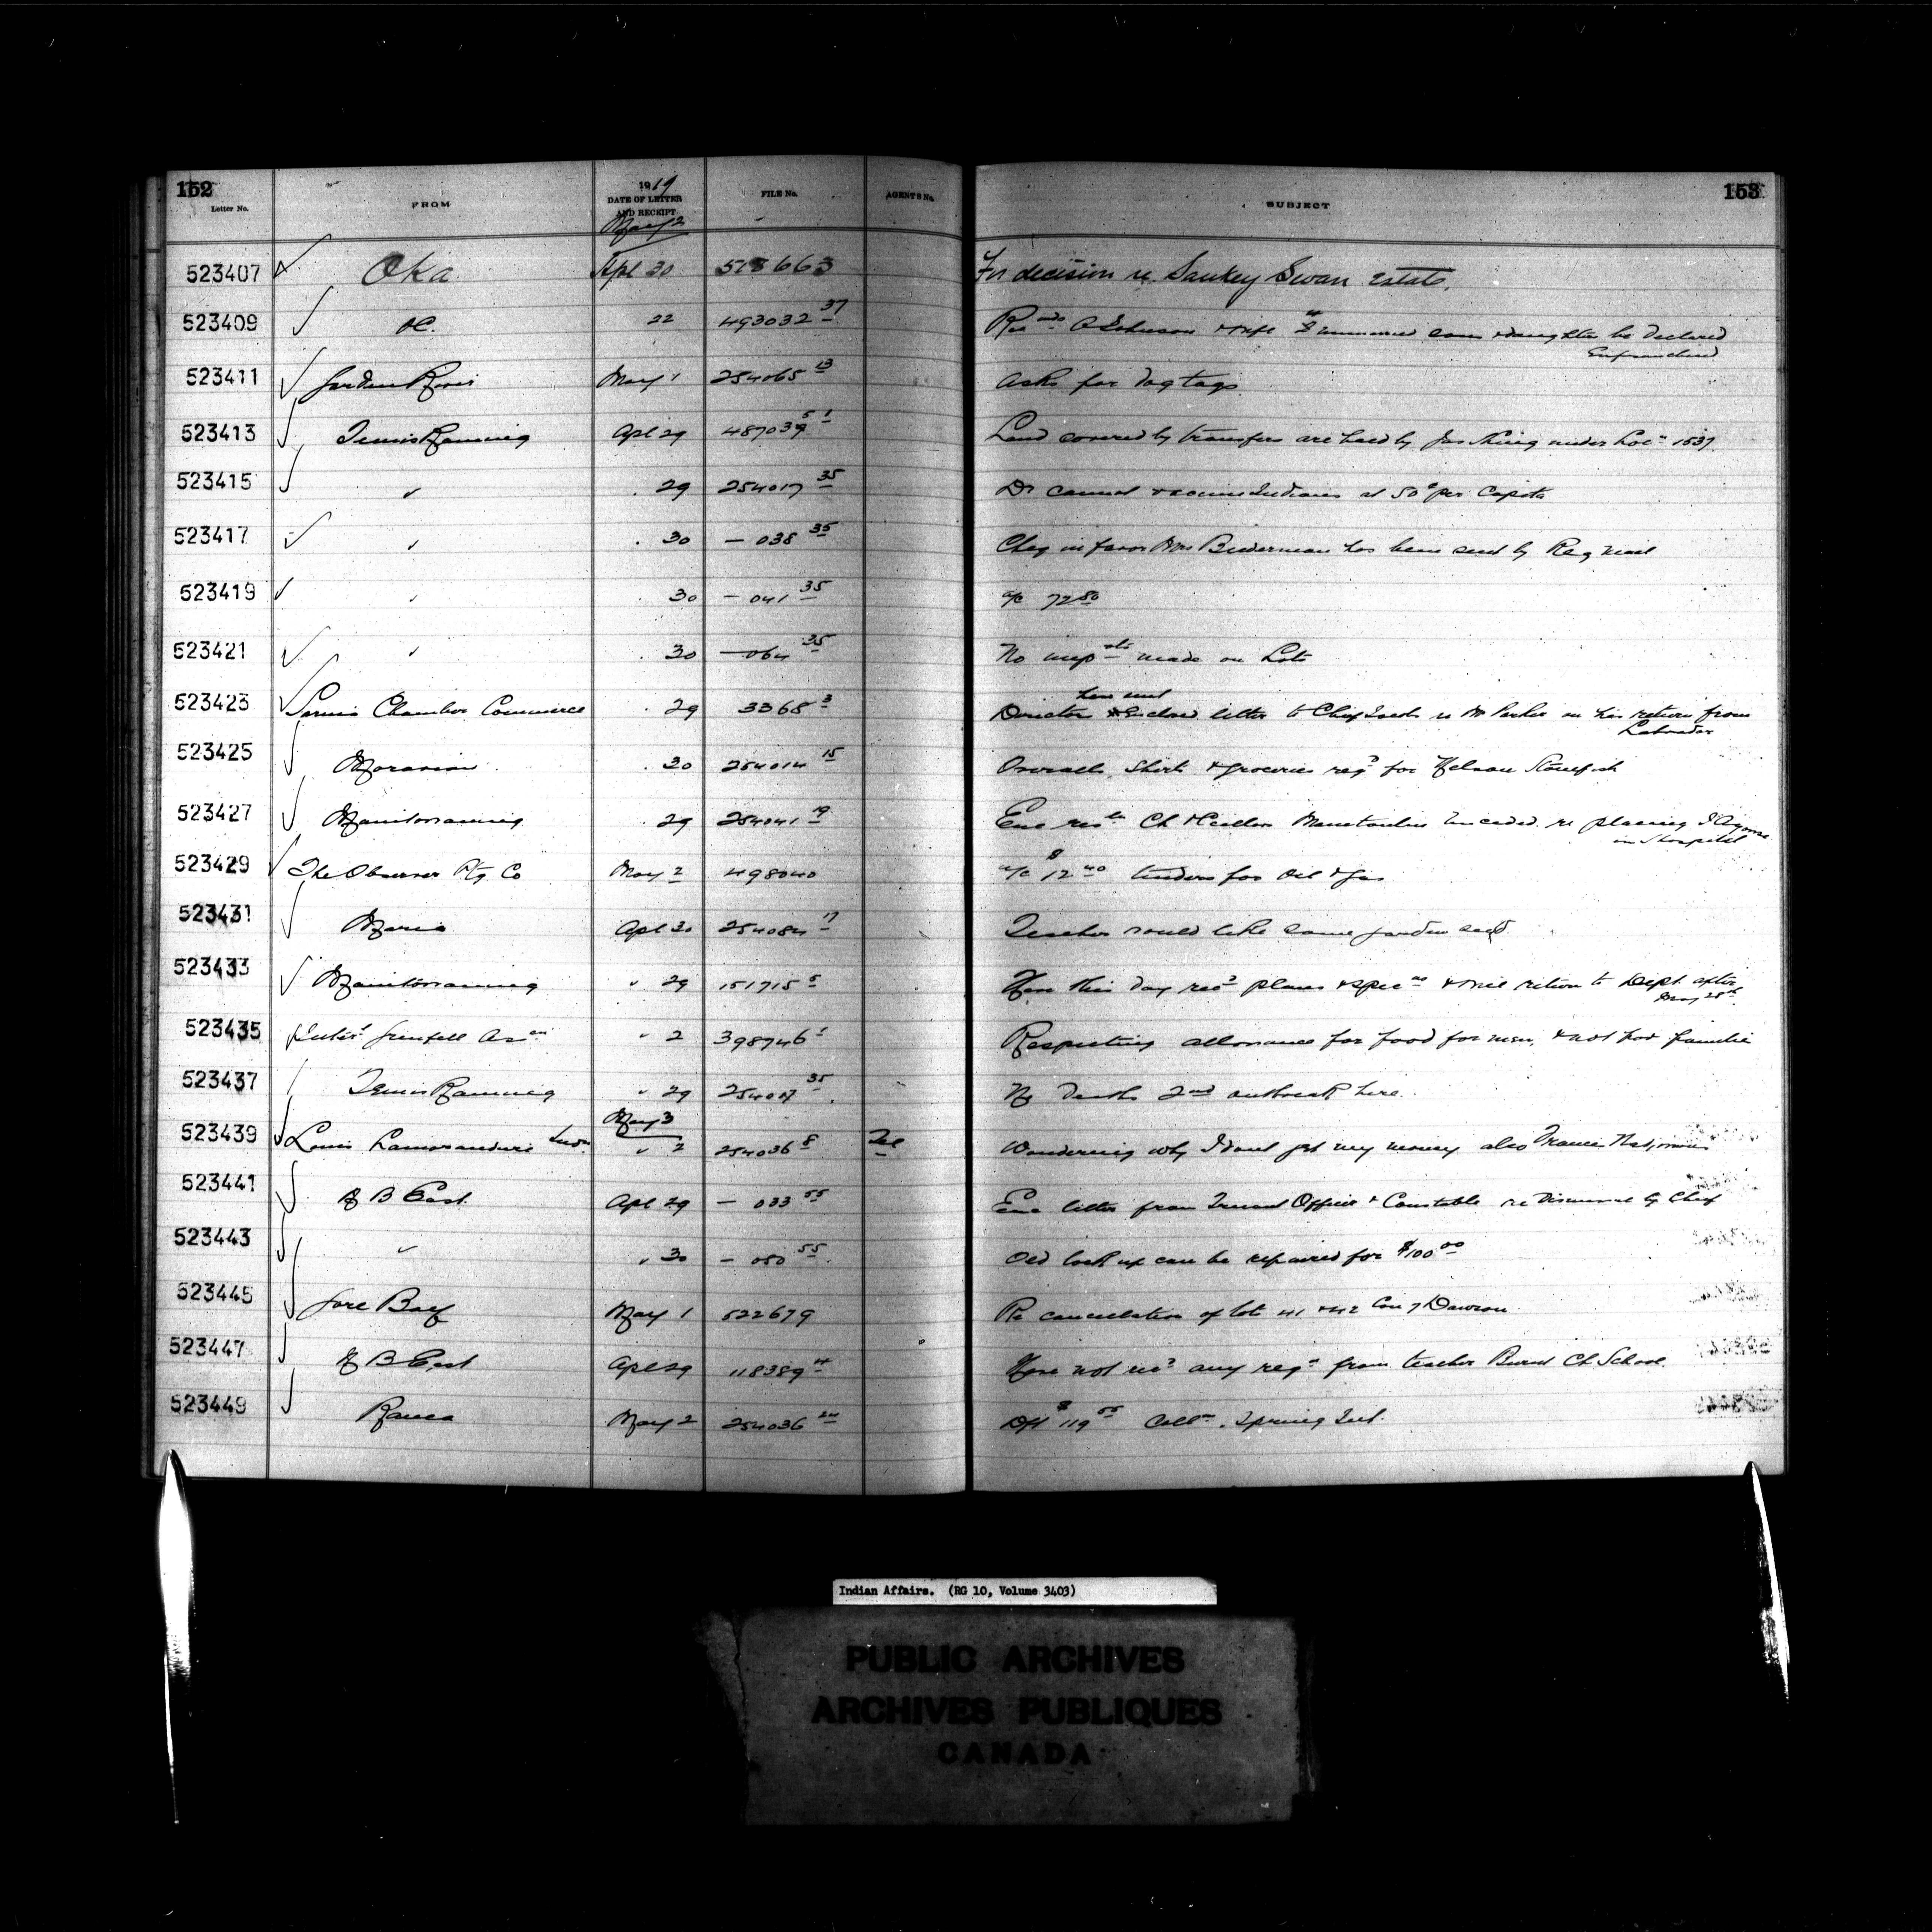 152
153
Letter No.
FROM
1919
DATE OF LETTER
AND RECEIPT
FILE No.
AGENTS No.
SUBJECT
May 2
523407 Oka Apl 30 518663 For decision re Sankey Swan Estate.
523409 22 493032 37 Johnson & wife & unmarried son & daughter be declared
Enfranchised
523411 Garden River May 1 254065 13 Asks for dog tags
523413 Temiskaming Apl 29 1 Land covered by transfers are held by Jas King under Loc n 1537
523415 " . 29 254017 35 Dr cannot vaccine Indians at 50c per Capita
523417 " . 30 — 038 35 Cheq in favor Mrs Biederman has been sent by Reg mail
523419 " . 30 — 041 35 a/c 72 80
523421 " . 30 — 064 35 No imp nts made on Lots
523423 Sarnia Chamber Commerce . 29 3368 3 Directors have and enclose letter to Chf Jacobs re Mr Parker on his return from
Labrador
523425 Moravian . 30 254014 15 Overalls, Shirt & groceries reqd for Nelson Stonefish
523427 Manitowaning . 29 254041 19 Enc res tn Ch & Cecillors Manitoulin Unceded re placing
in Hospital
523429 The Observer Ptg Co May 2 498040 a/c $12 40 tenders for Oil & Gas
523431 Maria Apl 30 254084 17 Teacher would like some garden seed
523433 Manitowaning " 29 151715 5 Have this day recd plans & specns & will return to Dept after
May 28th
523435 Grenfell Assn " 2 398746 1 Respecting allowance for food for men, & not for families
523437 Temiskaming " 29 254017 35 No deaths 2nd outbreak here.
May 3
523439 Louis Lamorandiere " 2 254036 8 Tel Wondering why I dont get my money also
523441 N B East Apl 29 — 033 55 Enc letter from Truant Officer & Constable re Dismissal by Chief
523443 " " 30 — 050 55 Old lock up can be repaired for $100 00
523445 Gore Bay May 1 522679 Re cancellation of lots 41 & 42 Con 7 Dawson
523447 N B East Apl 29 118389 4 Have not recd any reqn from teacher Burnt Ch School
523449 Rama May 2 254036 24 Dft $119 55 Colln. Spring Int.
Indian Affairs. (RG 10, Volume 3403)
PUBLIC ARCHIVES
ARCHIVES PUBLIQUES
CANADA